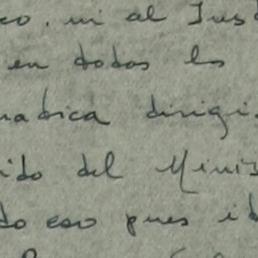 co. ni al Inst
en todos los
matica dirigi
ido del Minis
do eso pues ib